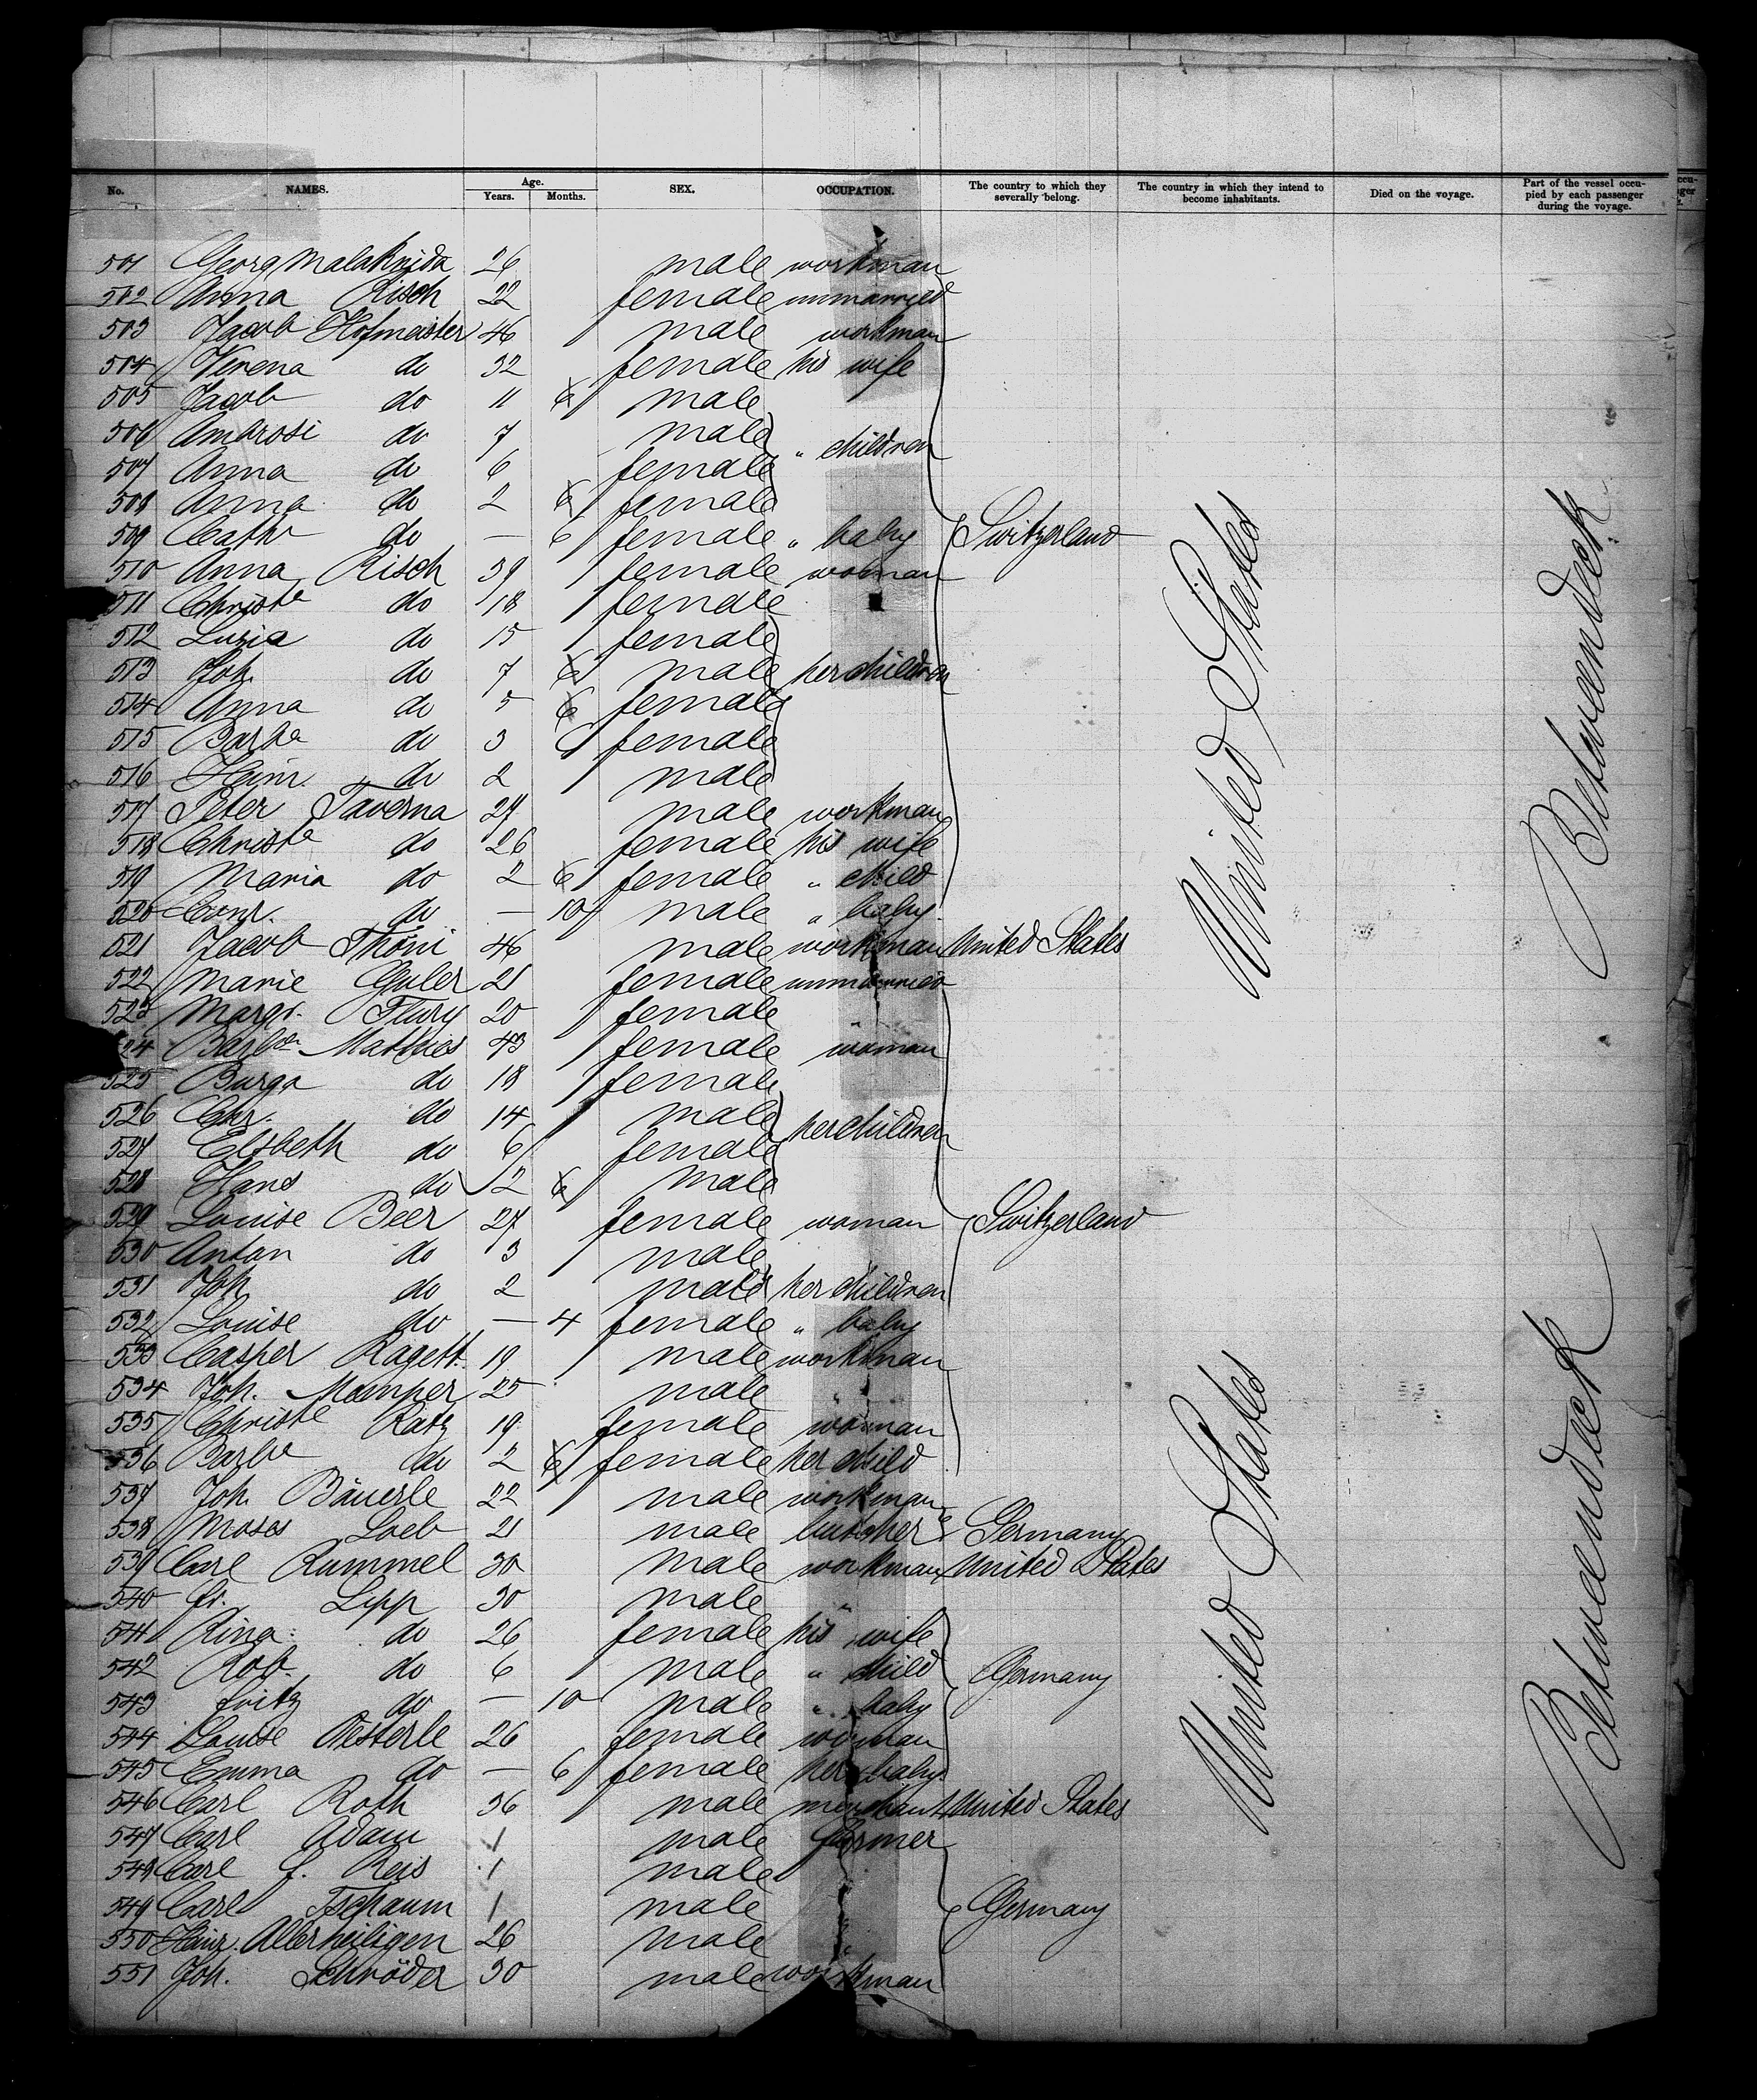 No. NAMES. Age. Years. Months. SEX. OCCUPATION. The country to which they severally belong. The country in which they intend to become inhabitants. Died on the voyage. Part of the vessel occupied by each passenger during the voyage.
501 Georg 26 male workman
502 Anna Risch 22 female unmarried
503 Jacob Hofmeister 46 male workman
504 Verena do 32 female his wife
505 Jacob do 11 6 male
506 Ambrosi do 7 male " children
507 Anna do 6 female
508 Anna do 2 6 female
509 Cathr do — 6 female " baby Switzerland
510 Anna Risch 39 female woman
511 Christe do 18 female
512 Luzia do 15 female
513 Joh. do 7 6 male her children
514 Anna do 5 6 female
515 Barba do 3 6 female
516 Heinr. do 2 male
517 Peter Taverna 27 male workman
518 Christe do 26 female his wife
519 Maria do 2 6 female " child
520 Conr. do — 10 male " baby
521 Jacob Thöni 46 male workman United States
522 Marie Guler 21 female unmarried
523 Margr. Flury 20 female "
524 Barba Mathies 43 female woman
525 Burga do 18 female
526 Chr. do 14 male her children
527 Elsbeth do 6 female
528 Hans do 2 6 male
529 Louise Beer 27 female woman Switzerland
530 Anton do 3 male
531 Joh. do 2 male her children
532 Louise do — 4 female " baby
533 Casper Ragett. 19 male workman
534 Joh. Mamper 25 male "
535 Christe Ratz 19 female woman
536 Barbr do 2 6 female her child
537 Joh. Bäuerle 22 male workman
538 Moses Loeb 21 male butcher Germany
539 Carl Rummel 30 male workman United States
540 Fr. Lipp 30 male "
541 Rina do 26 female his wife
542 Rob. do 6 male " child Germany
543 Fritz do — 10 male " baby
544 Louise Oesterle 26 female woman
545 Emma do — 6 female her baby
546 Carl Roth 36 male merchant United States
547 Carl Adam 1 male farmer
548 Carl F. Reis 1 male
549 Carl Tschaum 1 male Germany
550 Heinr. Allerheiligen 26 male "
551 Joh. Schröder 30 male workman
United States
Betweendeck
United States
Betweendeck